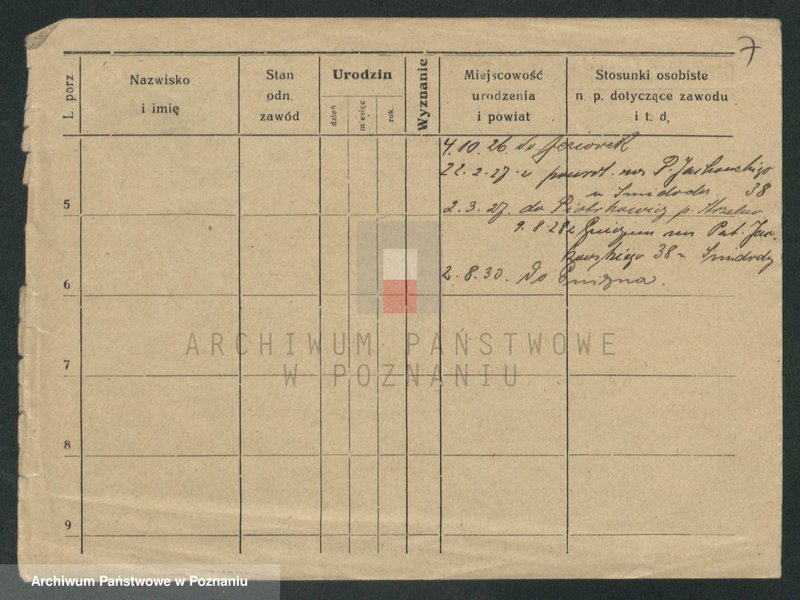 7
L. porz
Nazwisko
i imię
Stan
odn.
zawód
Urodzin
dzień
miesiąc
rok
Wyznanie
Miejscowość
urodzenia
i powiat
Stosunki osobiste
n. p. dotyczące zawodu
i t. d,
4. 10. 26. do Jeziorek
22. 2. 27. z powrot. na P. Jackowskiego
u 38
5
2. 3. 27. do p. Strzelno
9. 8. 28 z Gniezna na Pat. Jac-
kowskiego 38 u
6
2. 8. 30. do Gniezna.
7
8
9
ARCHIWUM PAŃSTWOWE
W POZNANIU
Archiwum Państwowe w Poznaniu